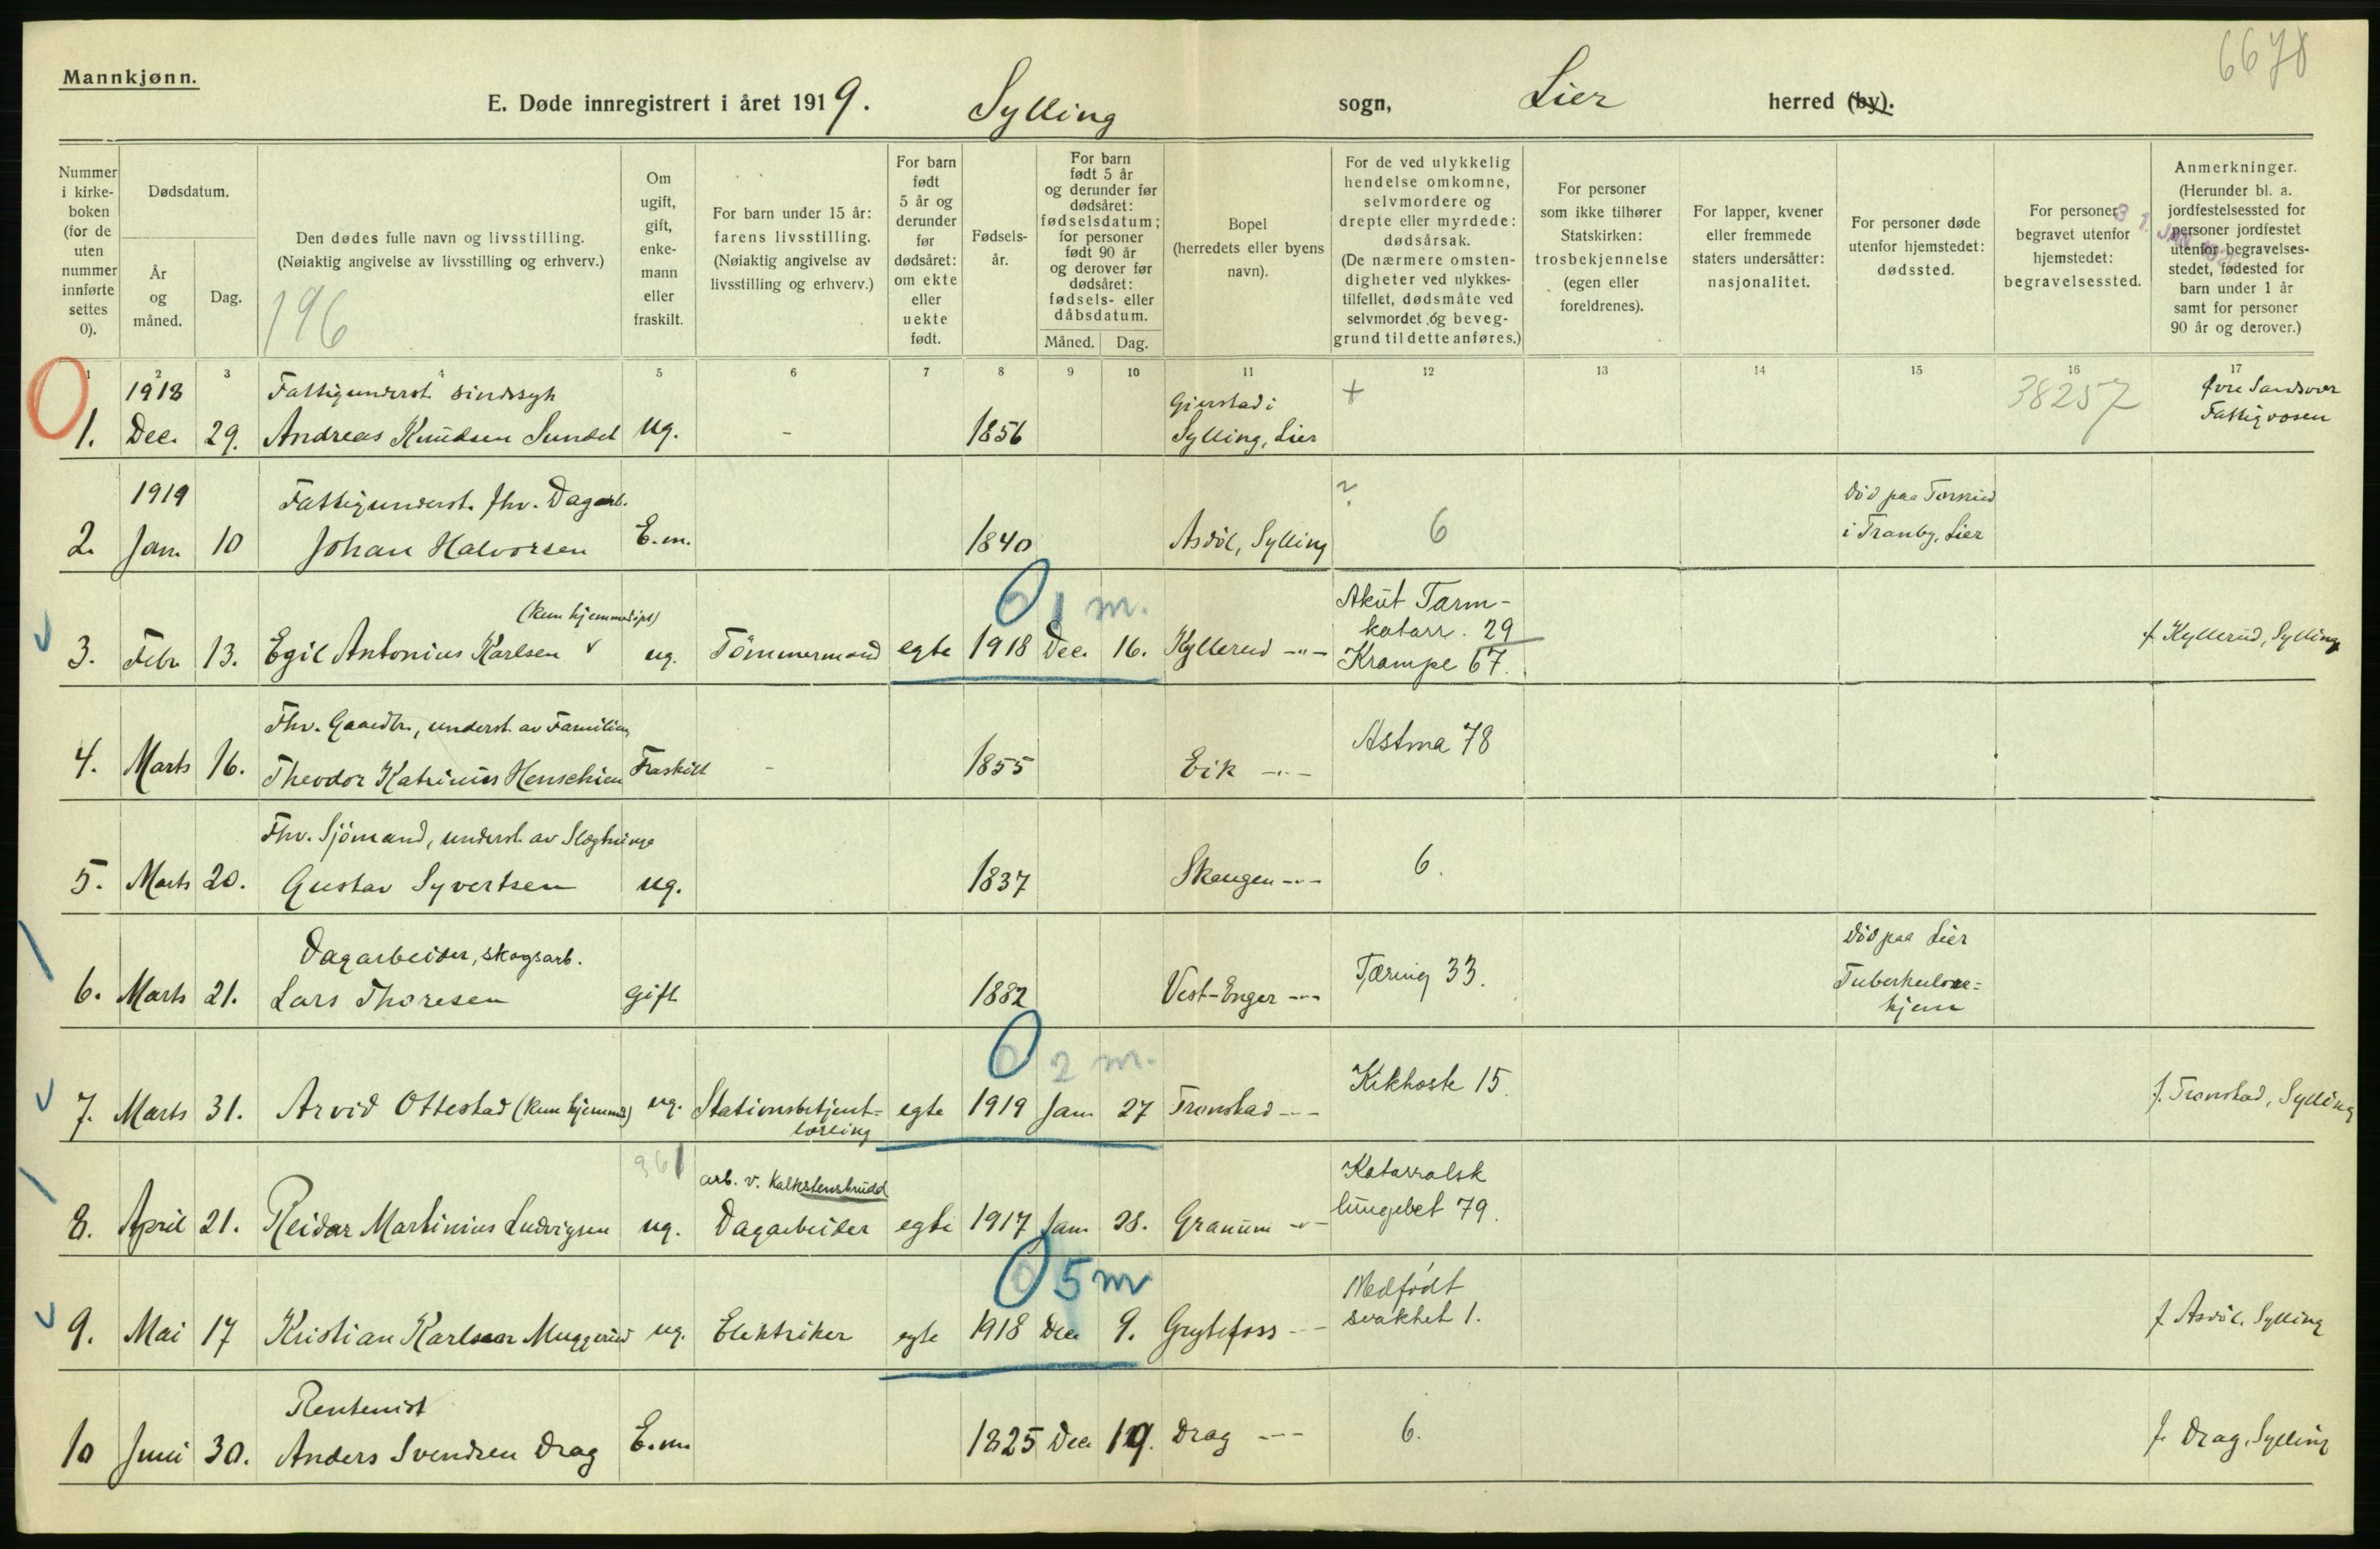 6678
Mannkjønn.
E. Døde innregistrert i året 1919. Sylling sogn, Lier herred (by).
Nummer i kirke-boken (for de uten nummer innførte settes 0).
Dødsdatum.
År og måned.
Dag.
Den dødes fulle navn og livsstilling.
(Nøiaktig angivelse av livsstilling og erhverv.)
196
Om ugift, gift, enke-mann eller fraskilt.
For barn under 15 år: farens livsstilling. (Nøiaktig angivelse av livsstilling og erhverv.)
For barn født 5 år og derunder før dødsåret: om ekte eller uekte født.
Fødsels-år.
For barn født 5 år og derunder før dødsåret: fødselsdatum; for personer født 90 år og derover før dødsåret: fødsels- eller dåbsdatum.
Måned. Dag.
Bopel (herredets eller byens navn).
For de ved ulykkelig hendelse omkomne, selvmordere og drepte eller myrdede: dødsårsak. (De nærmere omsten-digheter ved ulykkes-tilfellet, dødsmåte ved selvmordet og beveg-grund til dette anføres.)
For personer som ikke tilhører Statskirken: trosbekjennelse (egen eller foreldrenes).
For lapper, kvener eller fremmede staters undersåtter: nasjonalitet.
For personer døde utenfor hjemstedet: dødssted.
For personer begravet utenfor hjemstedet: begravelsessted.
Anmerkninger. (Herunder bl. a. jordfestelsessted for personer jordfestet utenfor begravelses-stedet, fødested for barn under 1 år samt for personer 90 år og derover.)
1 2 3 4 5 6 7 8 9 10 11 12 13 14 15 16 17
1918 Fattigunderst. sindssyk Gjerstad i + 38257 Øvre Sandsvær
1. Dec. 29. Andreas Knudsen Sundet ug. - 1856 Sylling, Lier Fattigvæsen
1919 Fattigunderst. fhv. Dagarb. ? Död paa Tornrud
2. Jan. 10 Johan Halvorsen E.m. 1840 Asdöl, Sylling 6 i Tranby, Lier
(kun hjemmedöpt) 0 1 m. Akut Tarm-
katarr. 29
3. Febr. 13. Egil Antonius Karlsen ug. Tömmermand egte 1918 Dec. 16. Kyllerud -"- Krampe 67. f. Kyllerud, Sylling
Fhv. Gaardbr., underst. av Familien, Astma 78
4. Marts 16. Theodor Katrinus Henschien Fraskilt - 1855 Eik -"-
Fhv. Sjömand, underst. av Slægtninge
5. Marts 20. Gustav Syvertsen ug. 1837 Skaugen -"- 6.
Dagarbeider, skogsarb. Död paa Lier
6. Marts 21. Lars Thoresen Gift 1882 Vest-Enger -"- Tæring 33. Tuberkulose-
hjem
0 2 m.
7. Marts 31. Arvid Ottestad (kun hjemmed) ug. Stationsbetjent- egte 1919 Jan. 27 Tronstad -"- Kikhoste 15. f. Tronstad, Sylling
lærling
361 arb. v. Kalkstensbrudd Katarralsk
8. April 21. Reidar Martinius Ludvigsen ug. Dagarbeider egte 1917 Jan. 28. Granum -"- lungebet 79.
0 5 m Medfödt
9. Mai 17 Kristian Karlsen Muggerud ug. Elektriker egte 1918 Dec. 9. Grytefoss -"- svakhet 1. f. Asdöl, Sylling
Rentenist
10 Juni 30. Anders Svendsen Drag E.m. 1825 Dec. 19. Drag -"- 6. f. Drag, Sylling